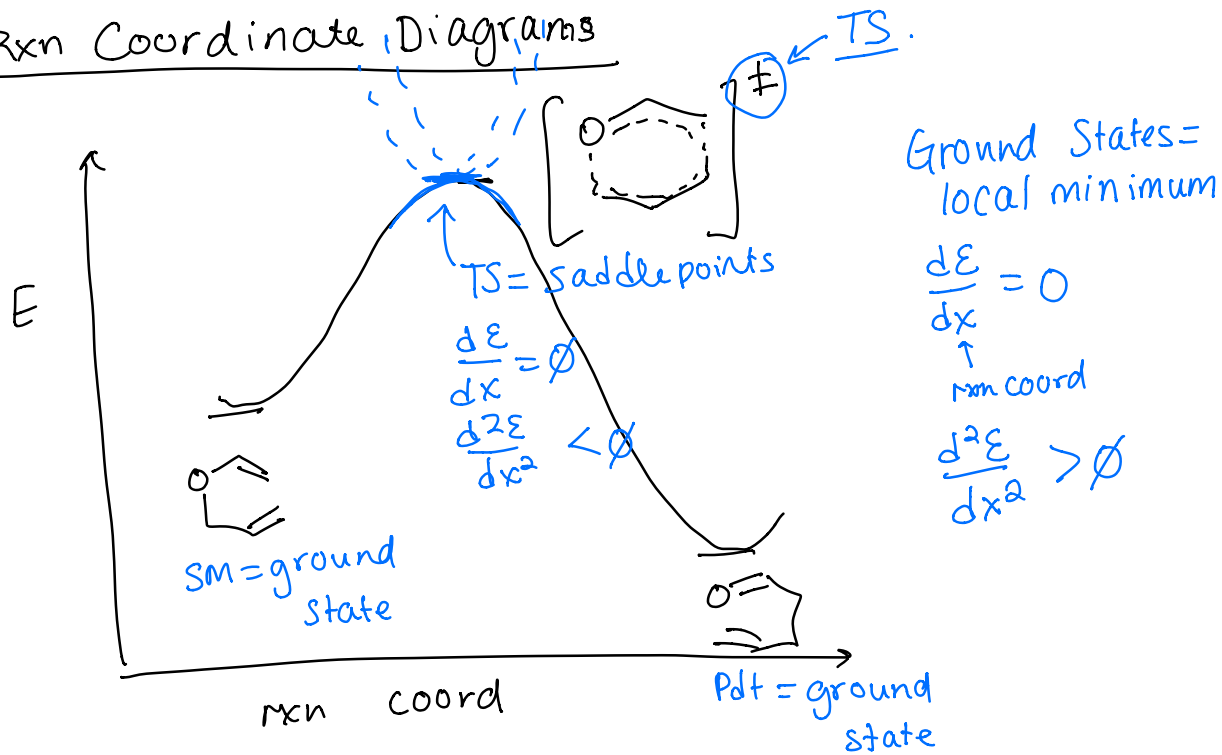 Rxn Coordinate Diagrams
TS.
‡
O
Ground States =
local minimum
dE/dx = 0
↑
rxn coord
d²E/dx² > ∅
E
TS = saddle points
dE/dx = ∅
d²E/dx² < ∅
O
SM = ground
state
O
Pdt = ground
state
rxn coord